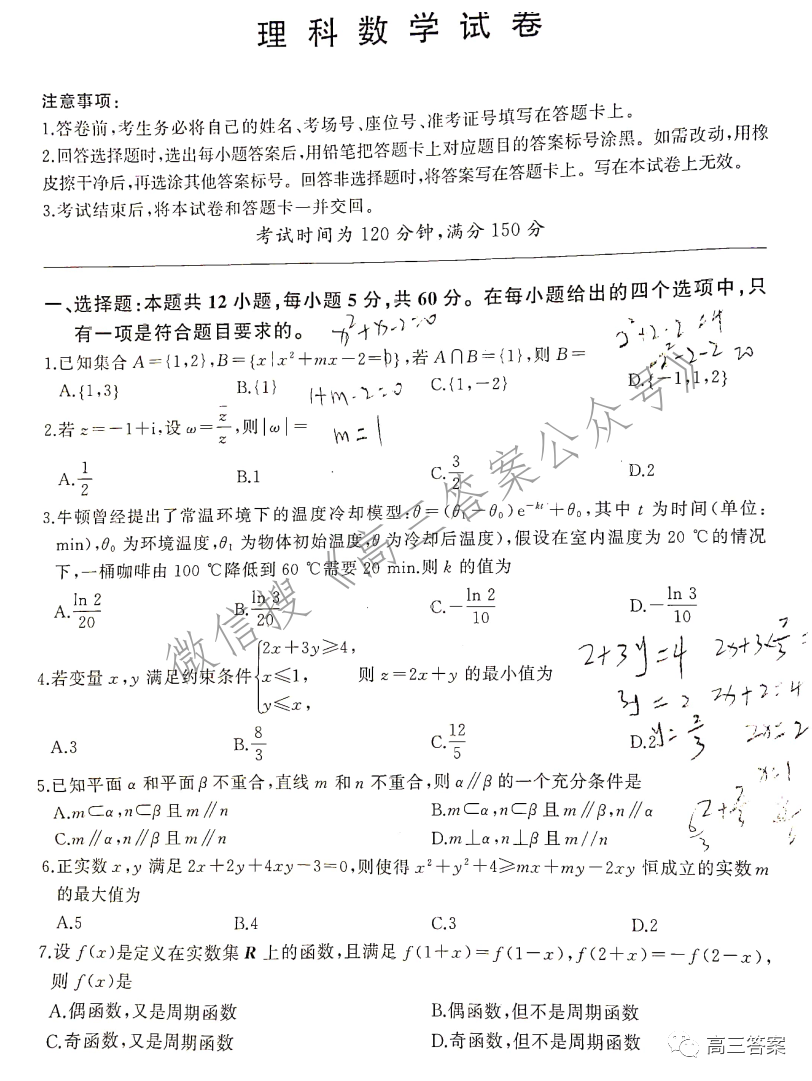 理科数学试卷
注意事项:
1.答卷前,考生务必将自己的姓名、考场号、座位号、准考证号填写在答题卡上。
2.回答选择题时,选出每小题答案后,用铅笔把答题卡上对应题目的答案标号涂黑。如需改动,用橡
皮擦干净后,再选涂其他答案标号。回答非选择题时,将答案写在答题卡上。写在本试卷上无效。
3.考试结束后,将本试卷和答题卡一并交回。
考试时间为 120 分钟,满分 150 分
一、选择题:本题共 12 小题,每小题 5 分,共 60 分。在每小题给出的四个选项中,只
有一项是符合题目要求的。 x²+x-2=0
1.已知集合 A={1,2},B={x|x²+mx-2=0},若 A∩B={1},则 B=
A.{1,3} B.{1} C.{1,-2} D.{-1,1,2}
1+m-2=0
2.若 z=-1+i,设 ω=z̄/z,则|ω|=
m=1
A.1/2 B.1 C.3/2 D.2
3.牛顿曾经提出了常温环境下的温度冷却模型:θ=(θ₁-θ₀)e^(-kt)+θ₀,其中 t 为时间(单位:
min),θ₀ 为环境温度,θ₁ 为物体初始温度,θ 为冷却后温度),假设在室内温度为 20 ℃的情况
下,一桶咖啡由 100 ℃降低到 60 ℃需要 20 min.则 k 的值为
A.ln 2/20 B.ln 3/20 C.-ln 2/10 D.-ln 3/10
4.若变量 x,y 满足约束条件{2x+3y≥4, x≤1, y≤x, 则 z=2x+y 的最小值为
2+3y=4
3y=2 2x+2=4
y=2/3 2x=2
x=1
A.3 B.8/3 C.12/5 D.2
5.已知平面 α 和平面 β 不重合,直线 m 和 n 不重合,则 α∥β 的一个充分条件是
A.m⊂α,n⊂β 且 m∥n B.m⊂α,n⊂β 且 m∥β,n∥α
C.m∥α,n∥β 且 m∥n D.m⊥α,n⊥β 且 m//n
6.正实数 x,y 满足 2x+2y+4xy-3=0,则使得 x²+y²+4≥mx+my-2xy 恒成立的实数 m
的最大值为
A.5 B.4 C.3 D.2
7.设 f(x)是定义在实数集 R 上的函数,且满足 f(1+x)=f(1-x),f(2+x)=-f(2-x),
则 f(x)是
A.偶函数,又是周期函数 B.偶函数,但不是周期函数
C.奇函数,又是周期函数 D.奇函数,但不是周期函数
微信搜《高三答案公众号》
高三答案